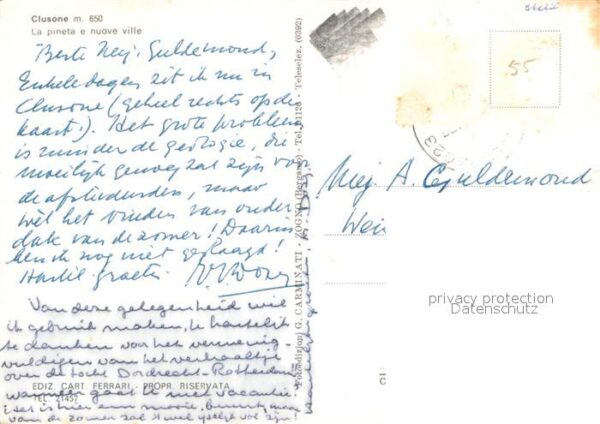 Clusone m. 650
La pineta e nuove ville
Beste Mej. Guldemond,
Enkele dagen zit ik nu in
Clusone (geheel rechts op de
kaart!). Het grote probleem
is minder de geologie, die
moeilijk genoeg zal zijn voor
de afstuderenden, maar
wèl het vinden van onder-
dak van de zomer! Daarin
ben ik nog niet geslaagd!
Hartel. groeten
Van deze gelegenheid wil
ik gebruik maken, te hartelijk
te danken voor het vermenig-
vuldigen van het verhaaltje
over de tocht Dordrecht-Rotterdam!!
wanneer gaat U met vacantie?
Het is hier een mooie, maar
van de zomer zal 't wel vol zijn!
EDIZ. CART. FERRARI - PROPR. RISERVATA
TEL. 21457
Fotoedizioni G. CARMINATI - ZOGNO (Bergamo) - Tel. 91128 - Teleselez. (0392)
55
Mej. A. Guldemond
privacy protection
Datenschutz